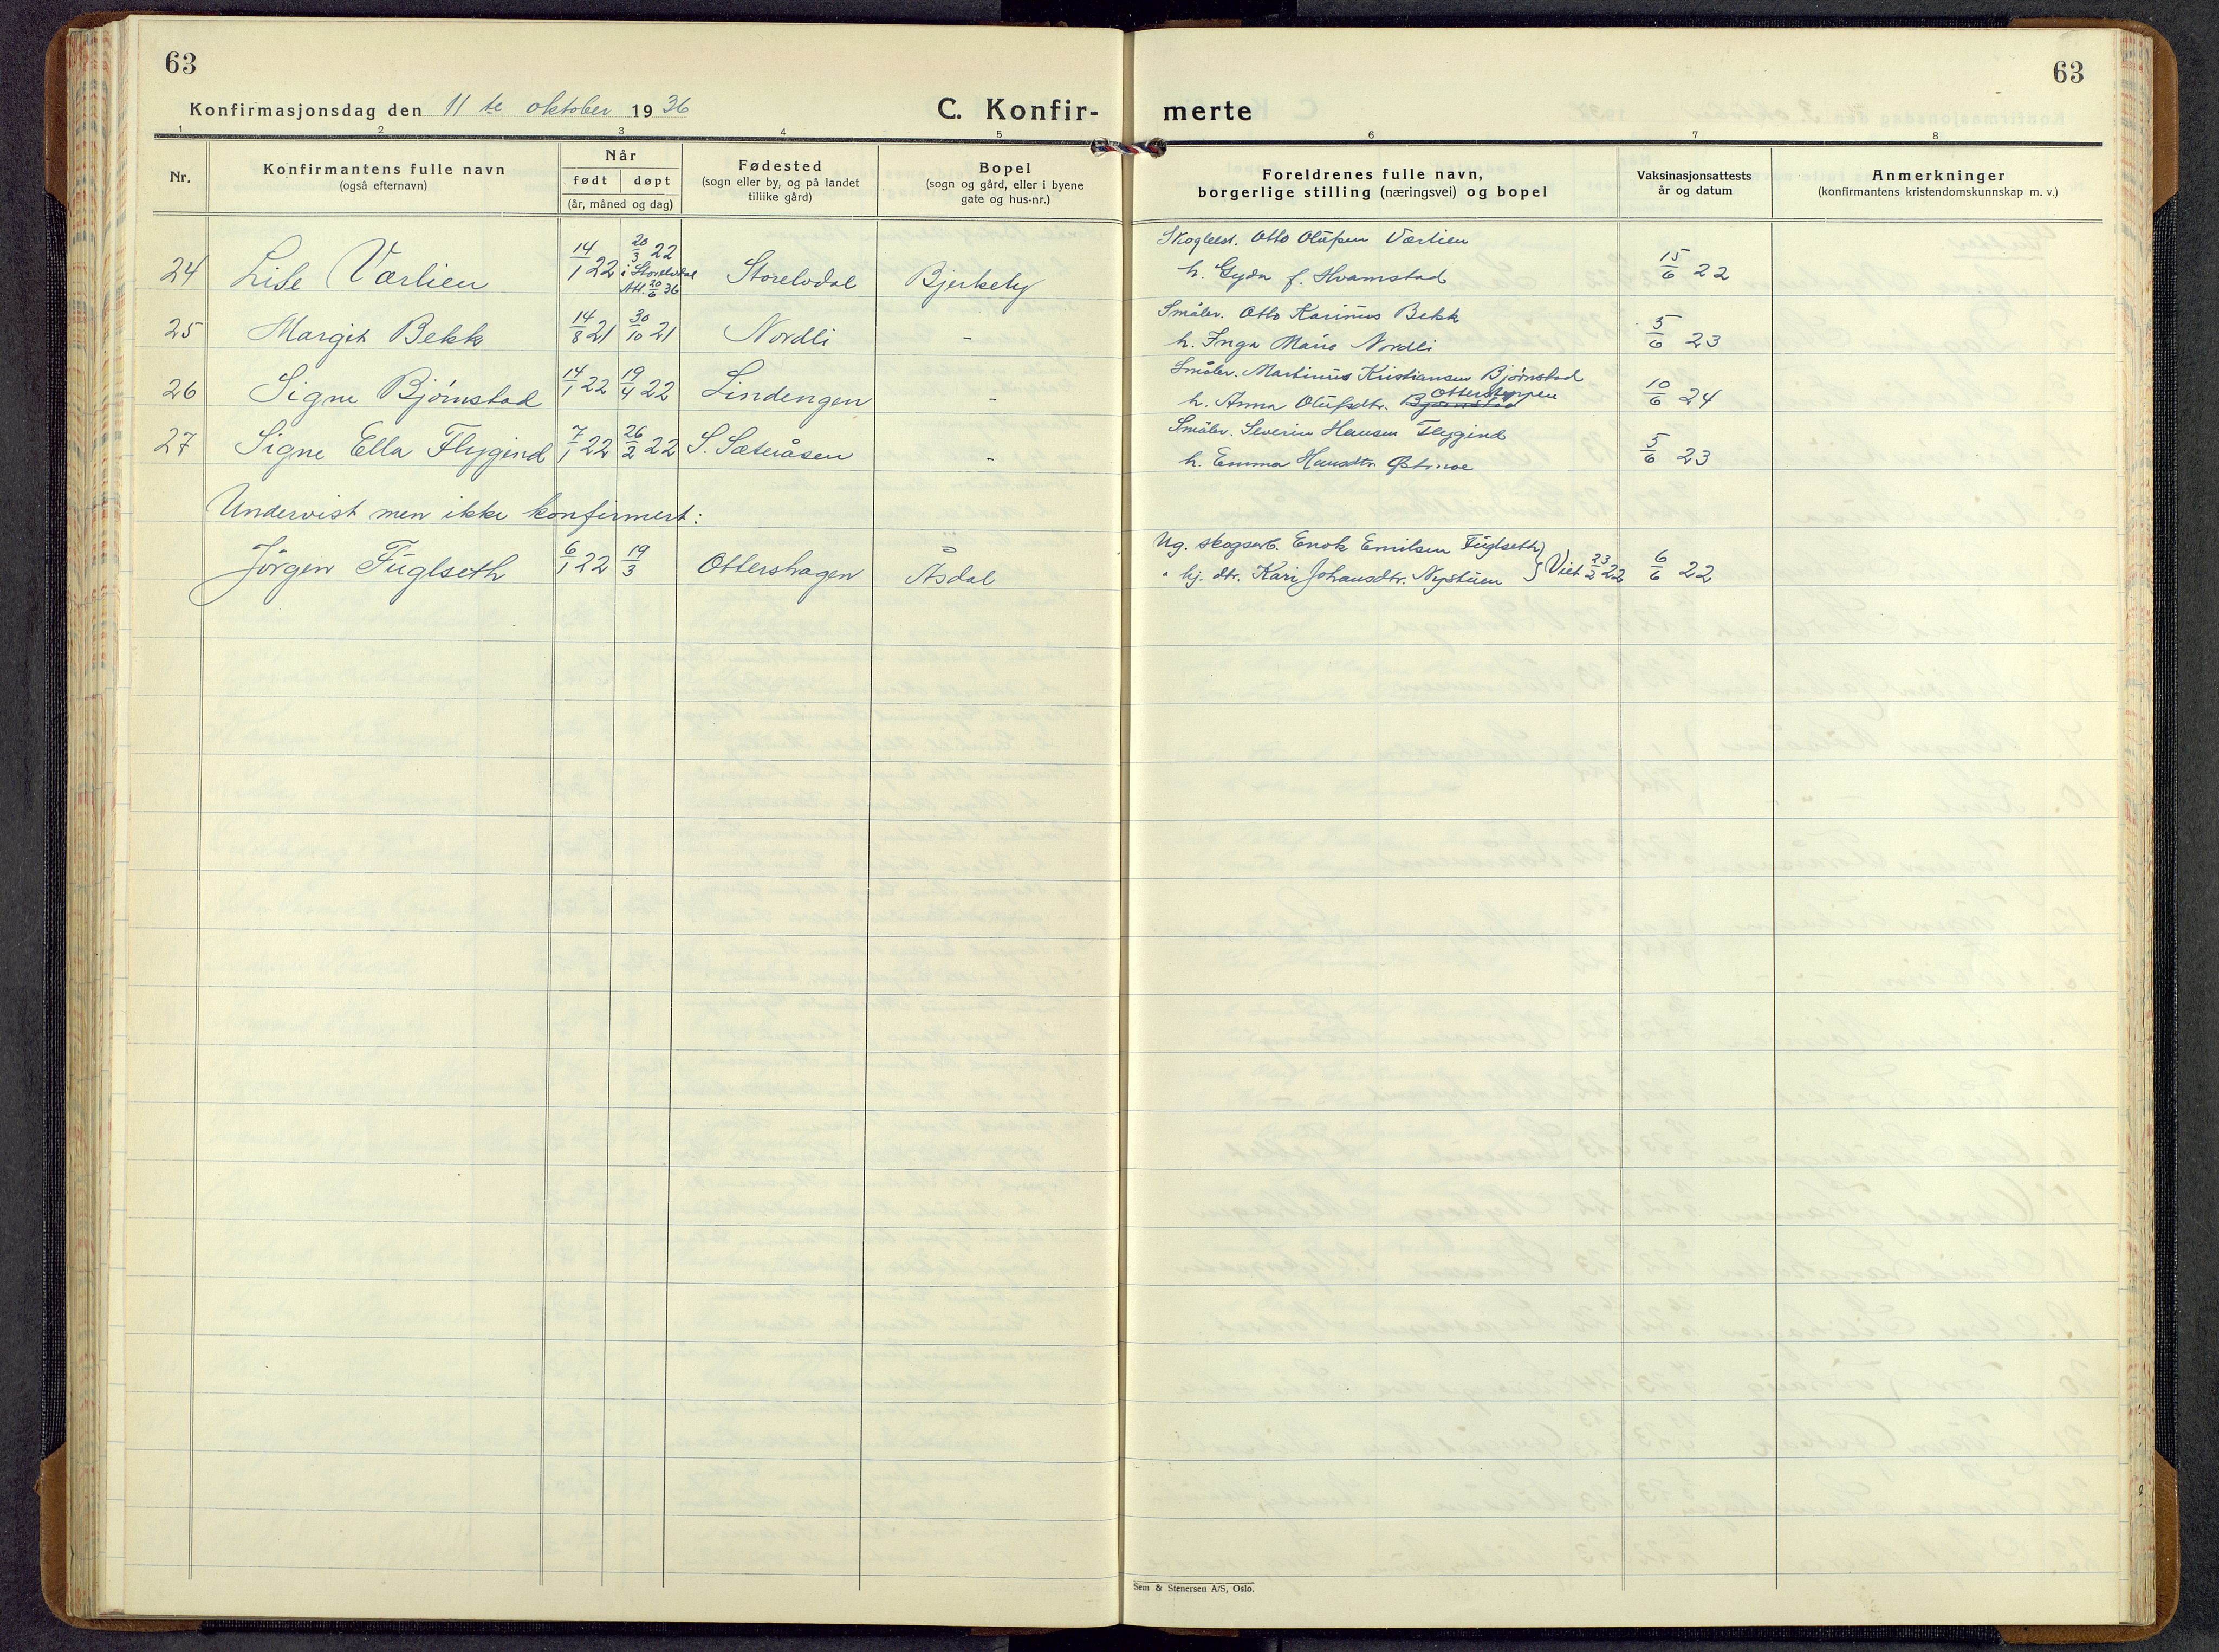 63
63
Konfirmasjonsdag den 11te oktober 1936
C. Konfir-
merte
1 2 3 4 5 6 7 8
Nr.
Konfirmantens fulle navn
(også efternavn)
Når
født døpt
(år, måned og dag)
Fødested
(sogn eller by, og på landet
tillike gård)
Bopel
(sogn og gård, eller i byene
gate og hus-nr.)
Foreldrenes fulle navn,
borgerlige stilling (næringsvei) og bopel
Vaksinasjonsattests
år og datum
Anmerkninger
(konfirmantens kristendomskunnskap m. v.)
24 Lise Værlien 14/1 22 20/3 22 i Storelvdal Att. 20/6 36 Storelvdal Bjerkely
Skogbest. Otto Olufsen Værlien
h. Gyda f. Hvamstad 15/6 22
25 Margit Bekk 14/8 21 30/10 21 Nordli -
Småbr. Otto Karinus Bekk
h. Inga Marie Nordli 5/6 23
26 Signe Bjørnstad 14/1 22 19/4 22 Lindengen -
Småbr. Martinus Kristiansen Bjørnstad
h. Anna Olufsdtr. Bjørnstad 10/6 24
27 Signe Ella Flygind 7/1 22 26/2 22 S. Sæteråsen -
Småbr. Severin Hansen Flygind
h. Emma Hansdtr. 5/6 23
Undervist men ikke konfirmert:
Jörgen Fuglseth 6/1 22 19/3 Ottershagen Åsdal
Ug. skogsarb. Enok Emilsen Fuglseth
" hj. dtr. Kari Johansdtr. Nystuen } Viet 23/2 22 6/6 22
Sem & Stenersen A/S, Oslo.